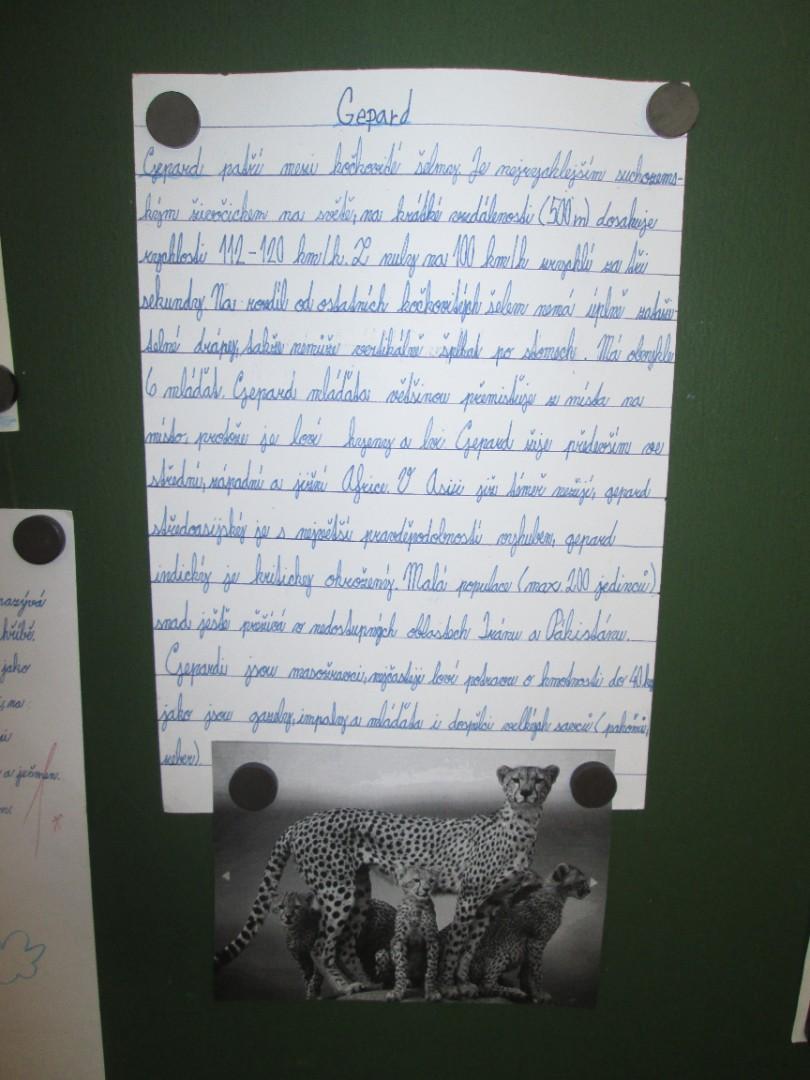 Gepard
Gepard patří mezi kočkovité šelmy. Je nejrychlejším suchozems-
kým živočichem na světě, na krátké vzdálenosti (500 m) dosahuje
rychlosti 112-120 km/h. Z nuly na 100 km/h zrychlí za tři
sekundy. Na rozdíl od ostatních kočkovitých šelem nemá úplně zataži-
telné drápy, takže nemůže vertikálně šplhat po stromech. Má obvykle
6 mláďat. Gepard mláďata většinou přemisťuje z místa na
místo, protože je loví hyeny a lvi. Gepard žije především ve
střední, západní a jižní Africe. V Asii již téměř nežijí, gepard
středoasijský je s největší pravděpodobností vyhuben, gepard
indický je kriticky ohrožený. Malá populace (max. 200 jedinců)
snad ještě přežívá v nedostupných oblastech Íránu a Pákistánu.
Gepardi jsou masožravci, nejčastěji loví potravu o hmotnosti do 40 kg
jako jsou gazely, impaly a mláďata i dospělci velkých savců (pakoně,
zeber)
nazývá
hříbě.
jako
a ječmen.